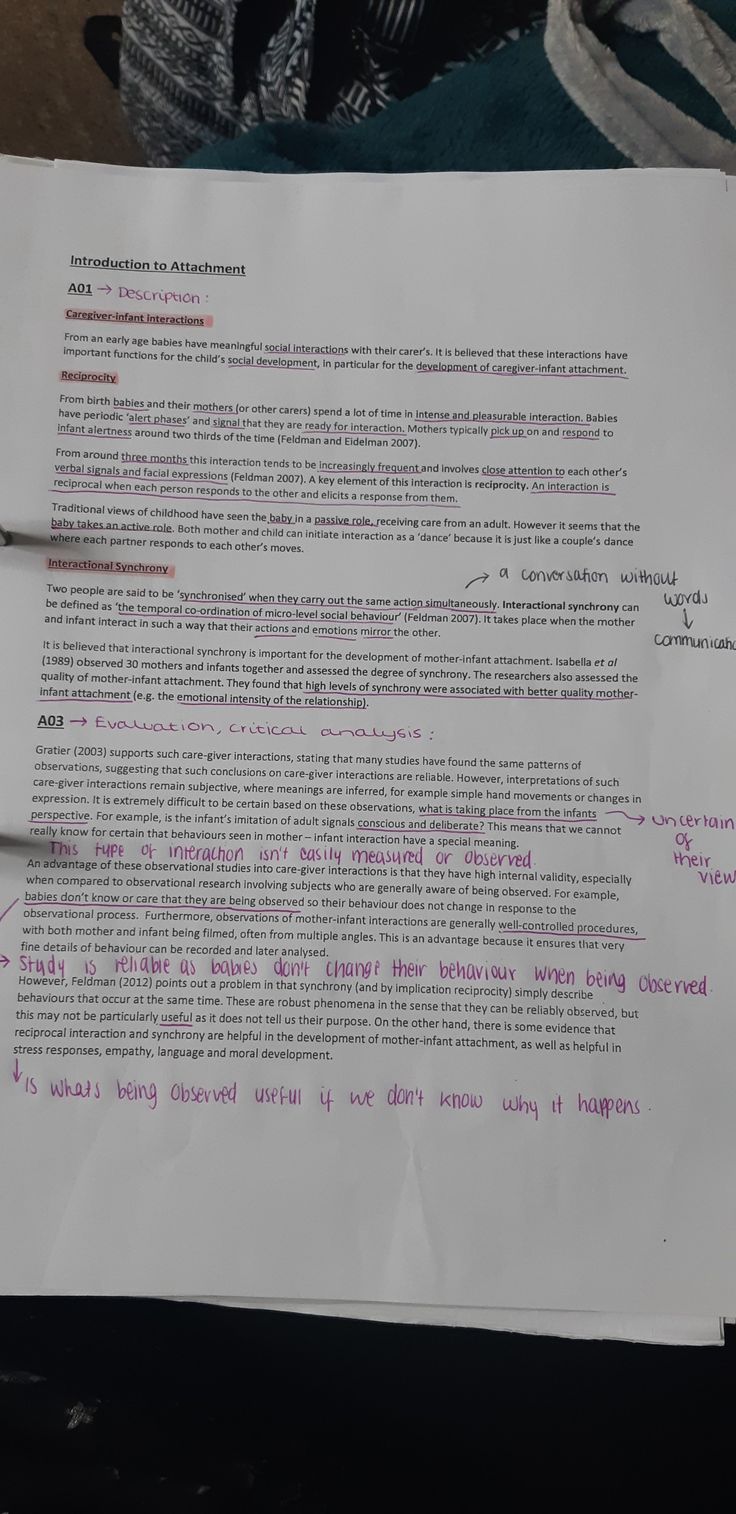 Introduction to Attachment
A01 → Description:
Caregiver-infant interactions
From an early age babies have meaningful social interactions with their carer's. It is believed that these interactions have
important functions for the child's social development, in particular for the development of caregiver-infant attachment.
Reciprocity
From birth babies and their mothers (or other carers) spend a lot of time in intense and pleasurable interaction. Babies
have periodic 'alert phases' and signal that they are ready for interaction. Mothers typically pick up on and respond to
infant alertness around two thirds of the time (Feldman and Eidelman 2007).
From around three months this interaction tends to be increasingly frequent and involves close attention to each other's
verbal signals and facial expressions (Feldman 2007). A key element of this interaction is reciprocity. An interaction is
reciprocal when each person responds to the other and elicits a response from them.
Traditional views of childhood have seen the baby in a passive role, receiving care from an adult. However it seems that the
baby takes an active role. Both mother and child can initiate interaction as a 'dance' because it is just like a couple's dance
where each partner responds to each other's moves.
Interactional Synchrony
→ a conversation without
words
↓
communicatio
Two people are said to be 'synchronised' when they carry out the same action simultaneously. Interactional synchrony can
be defined as 'the temporal co-ordination of micro-level social behaviour' (Feldman 2007). It takes place when the mother
and infant interact in such a way that their actions and emotions mirror the other.
It is believed that interactional synchrony is important for the development of mother-infant attachment. Isabella et al
(1989) observed 30 mothers and infants together and assessed the degree of synchrony. The researchers also assessed the
quality of mother-infant attachment. They found that high levels of synchrony were associated with better quality mother-
infant attachment (e.g. the emotional intensity of the relationship).
A03 → Evaluation, critical analysis:
Gratier (2003) supports such care-giver interactions, stating that many studies have found the same patterns of
observations, suggesting that such conclusions on care-giver interactions are reliable. However, interpretations of such
care-giver interactions remain subjective, where meanings are inferred, for example simple hand movements or changes in
expression. It is extremely difficult to be certain based on these observations, what is taking place from the infants
perspective. For example, is the infant's imitation of adult signals conscious and deliberate? This means that we cannot
really know for certain that behaviours seen in mother – infant interaction have a special meaning.
→ uncertain
of
their
view
This type of interaction isn't easily measured or observed.
An advantage of these observational studies into care-giver interactions is that they have high internal validity, especially
when compared to observational research involving subjects who are generally aware of being observed. For example,
babies don't know or care that they are being observed so their behaviour does not change in response to the
observational process. Furthermore, observations of mother-infant interactions are generally well-controlled procedures,
with both mother and infant being filmed, often from multiple angles. This is an advantage because it ensures that very
fine details of behaviour can be recorded and later analysed.
→ Study is reliable as babies don't change their behaviour when being observed.
However, Feldman (2012) points out a problem in that synchrony (and by implication reciprocity) simply describe
behaviours that occur at the same time. These are robust phenomena in the sense that they can be reliably observed, but
this may not be particularly useful as it does not tell us their purpose. On the other hand, there is some evidence that
reciprocal interaction and synchrony are helpful in the development of mother-infant attachment, as well as helpful in
stress responses, empathy, language and moral development.
↓ is whats being observed useful if we don't know why it happens.